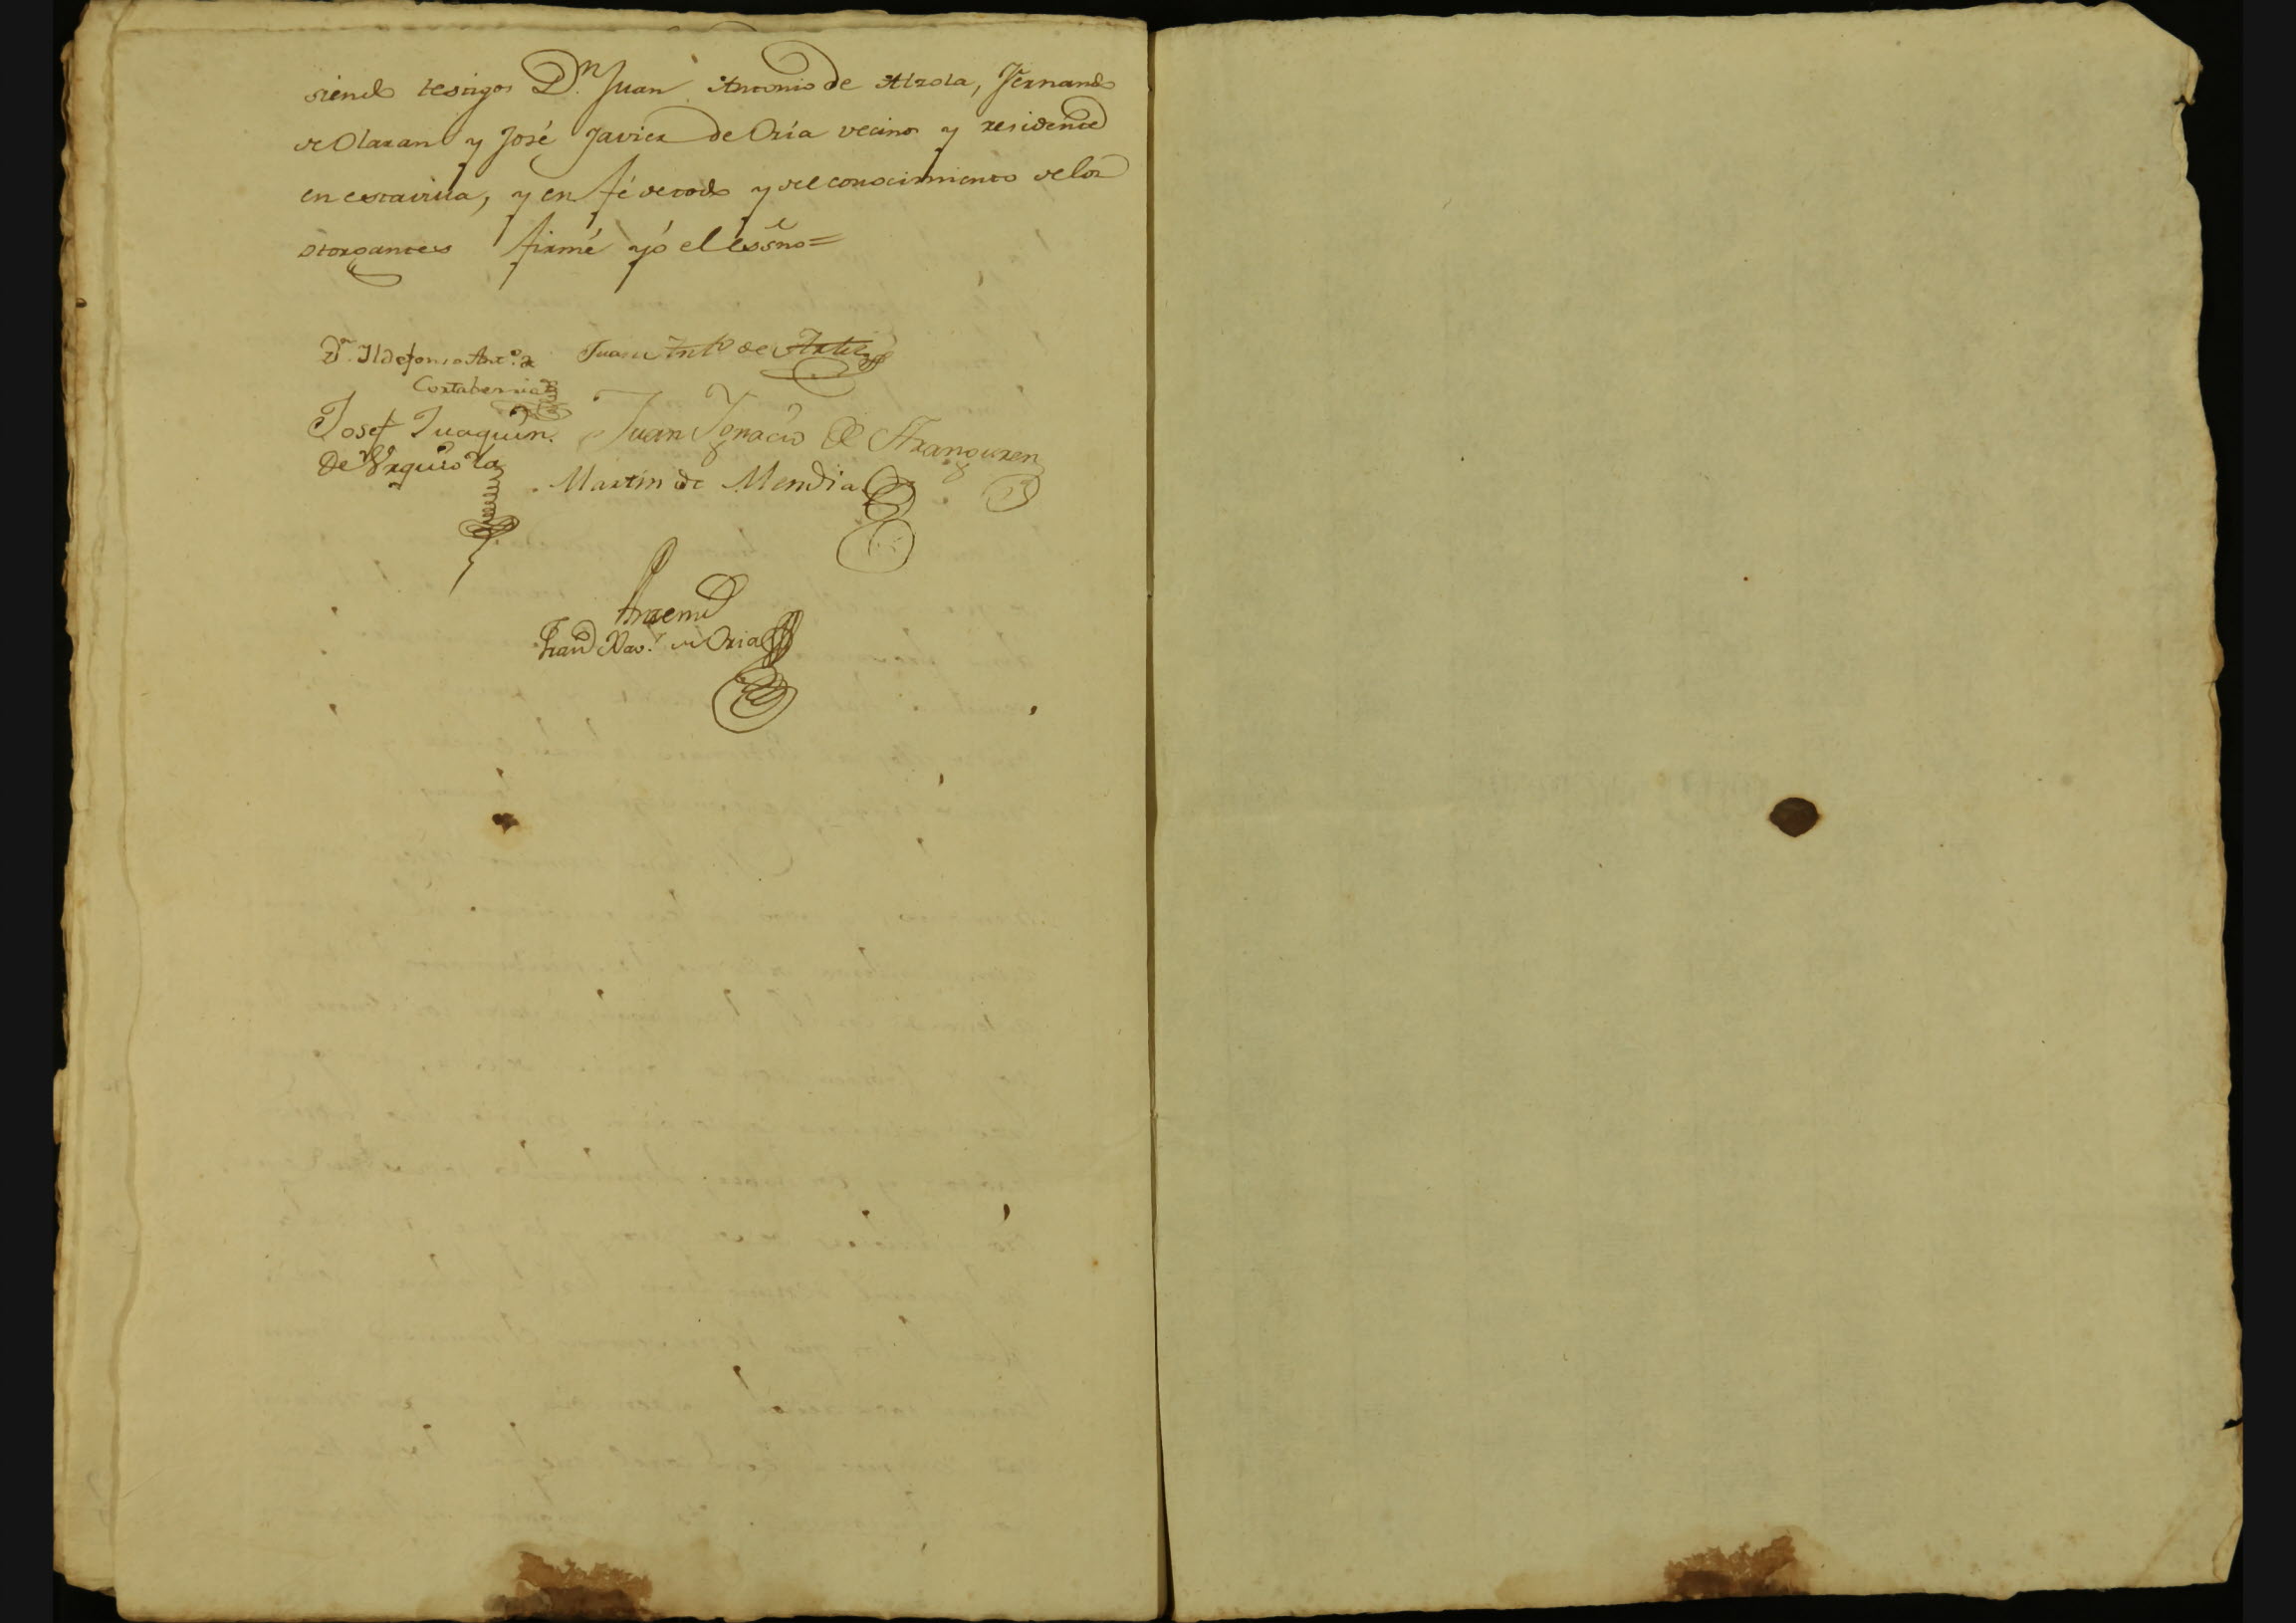 siendo testigos Dn. Juan Antonio de Alzola, Fernando
de Olaran y José Javier de Oria vecinos y residente
en esta villa, y en fé de todo y del conocimiento de los
otorgantes firmé yó el essno=
Dn. Ildefonso Anto. de
Cortaberria
Juan Anto de
Josef Juaquin
de Urquiola
Juan Ygnacio de Aranguren
Martin de Mendia
Antemi
Franco Xav.r de Oria